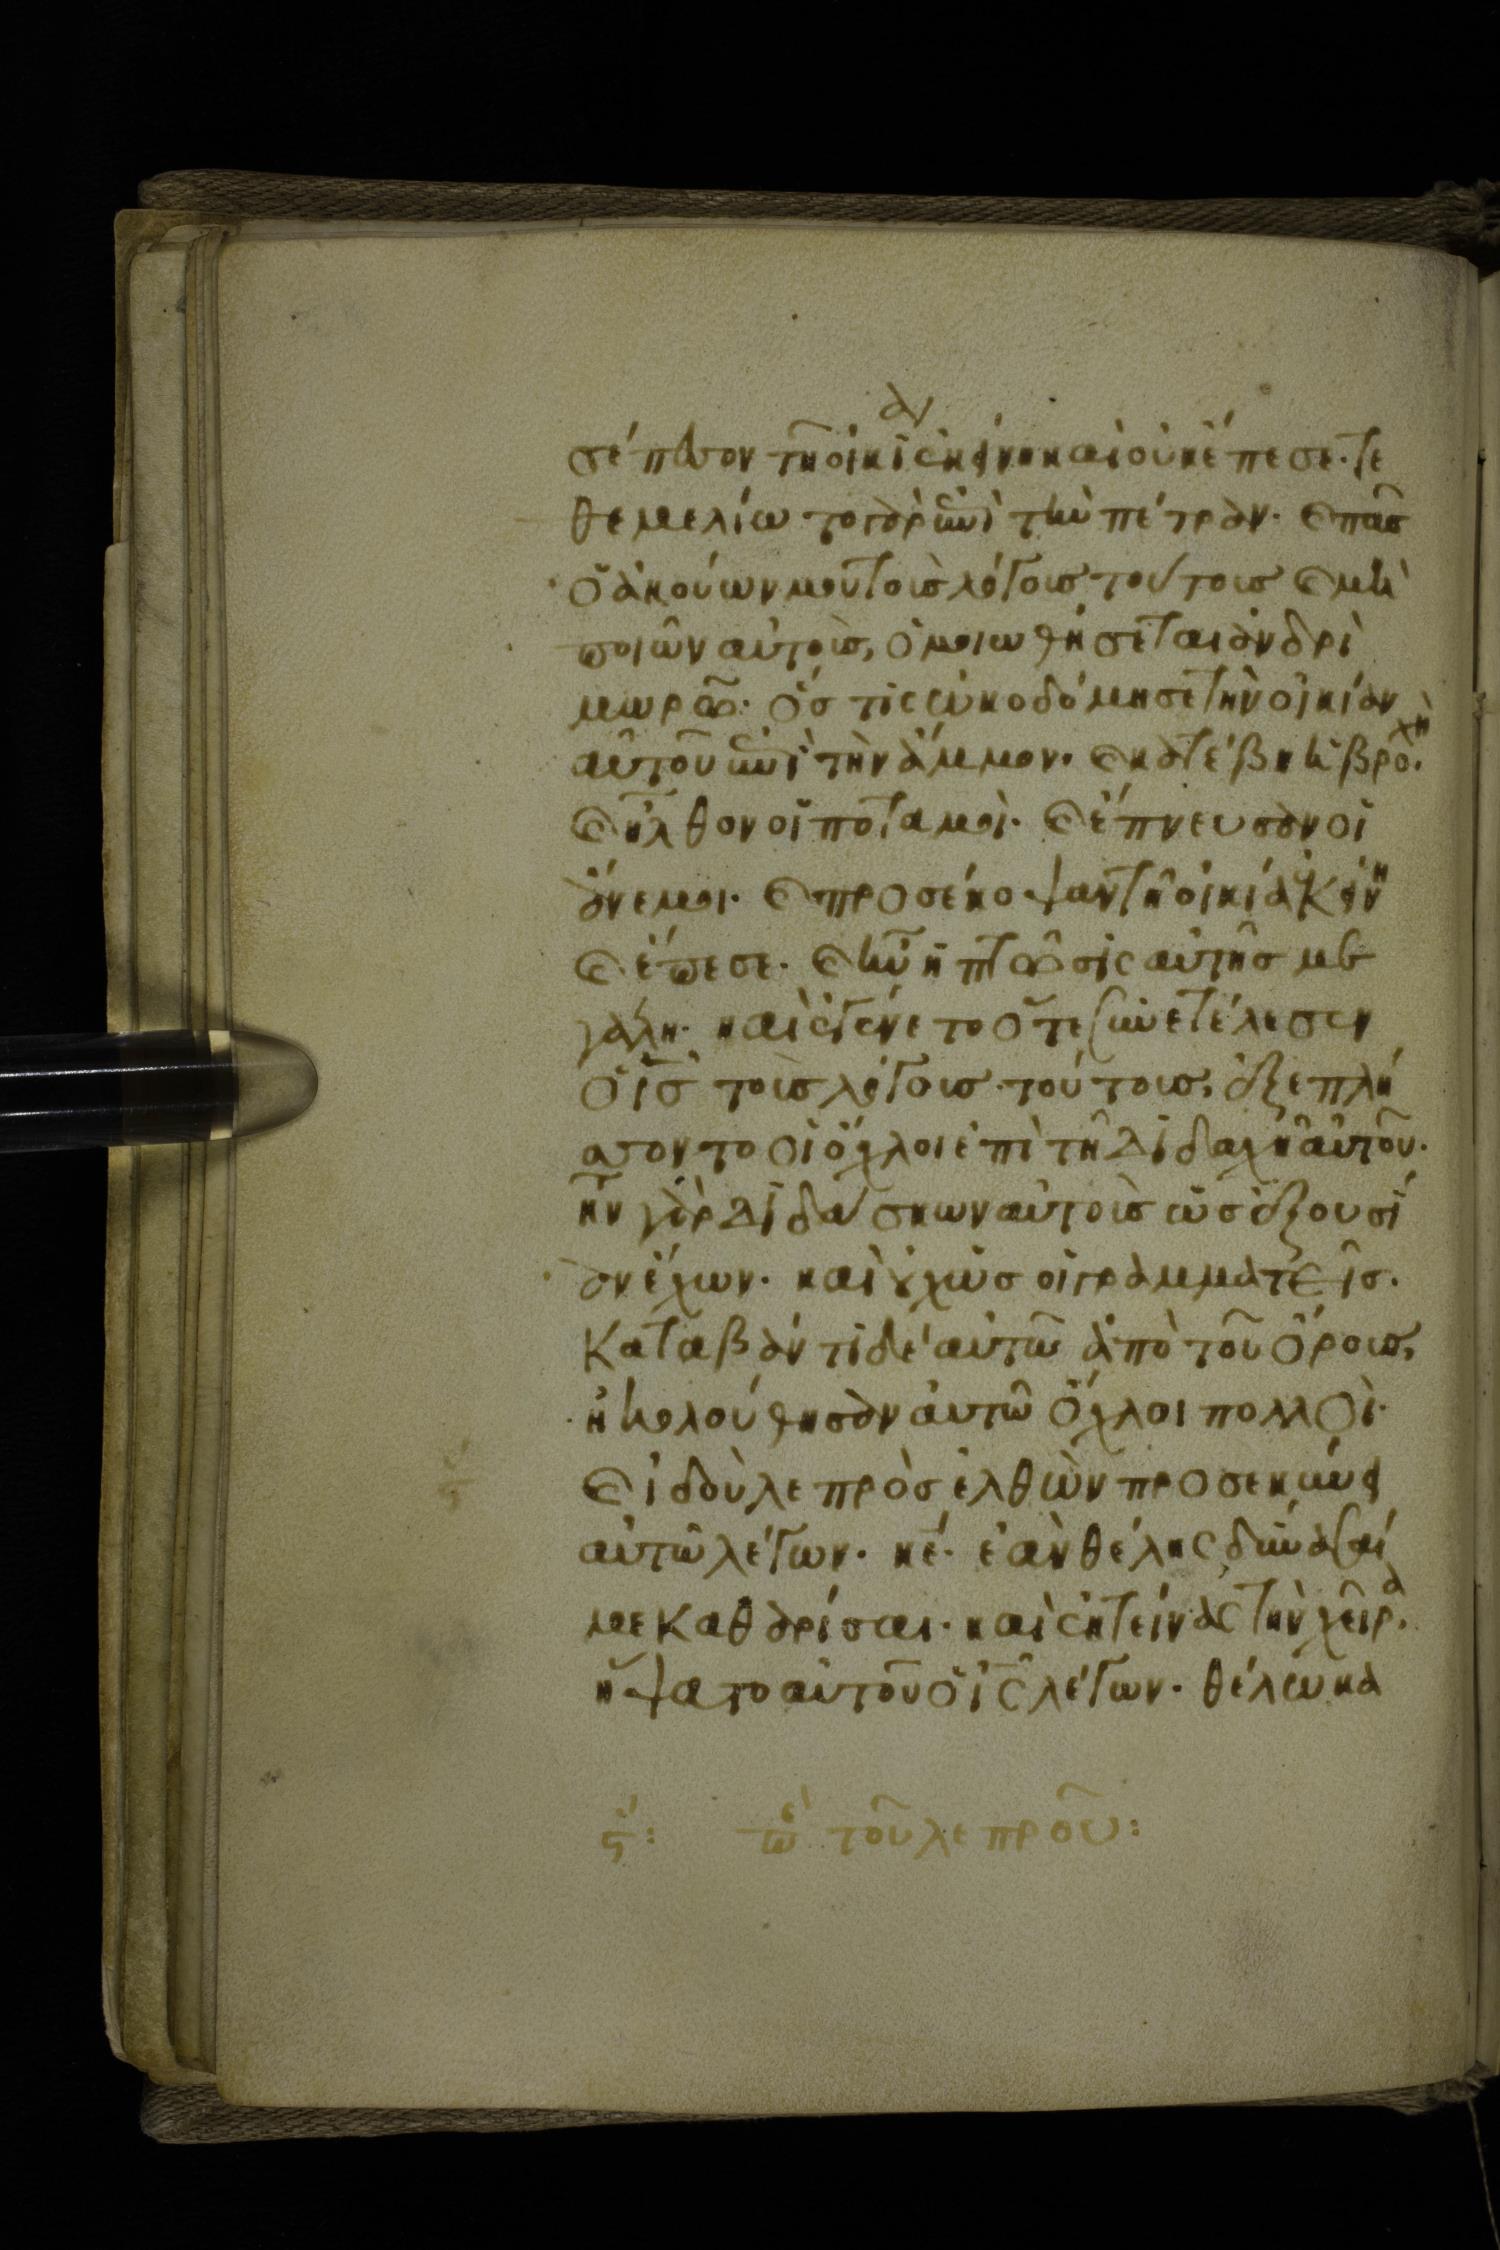 σέπεσον τῆ οἰκία ἐκείνη καὶ οὐκ ἔπεσε· τε
θεμελίωτο γὰρ ἐπὶ τὴν πέτραν· καὶ πᾶσ
ὁ ἀκούων μου τοὺσ λόγουσ τούτουσ καὶ μὴ
ποιῶν αὐτοὺσ, ὁμοιωθήσεται ἀνδρὶ
μωρῶ· ὅστις ὠκοδόμησε τὴν οἰκίαν
αὐτοῦ ἐπὶ τὴν ἄμμον· καὶ κατέβη ἡ βροχὴ·
καὶ ἦλθον οἱ ποταμοὶ· καὶ ἔπνευσαν οἱ
ἄνεμοι· καὶ προσέκοψαν τῆ οἰκία ἐκείνη
καὶ ἔπεσε· καὶ ἦν ἡ πτῶσις αὐτῆσ με
γάλη· καὶ ἐγένετο ὅτε συνετέλεσεν
ὁ ἰσ τοὺσ λόγουσ τούτουσ, ἐξεπλή
σσοντο οἱ ὄχλοι ἐπὶ τῆ διδαχῆ αὐτοῦ·
ἦν γὰρ διδάσκων αὐτοὺσ ὡσ ἐξουσί
αν ἔχων· καὶ οὐχ ὡσ οἱ γραμματεῖσ·
Καταβάντι δὲ αὐτῶ ἀπὸ τοῦ ὄρουσ,
ἠκολούθησαν αὐτῶ ὄχλοι πολλοὶ·
καὶ ἰδοὺ λεπρὸσ ἐλθὼν προσεκύνει
αὐτῶ λέγων· κέ· ἐὰν θέλης δύνασαί
με καθαρίσαι· καὶ ἐκτείνας τὴν χεῖρα·
ἥψατο αὐτοῦ ὁ ἰς λέγων· θέλω κα
ϛ: πε τοῦ λεπροῦ: